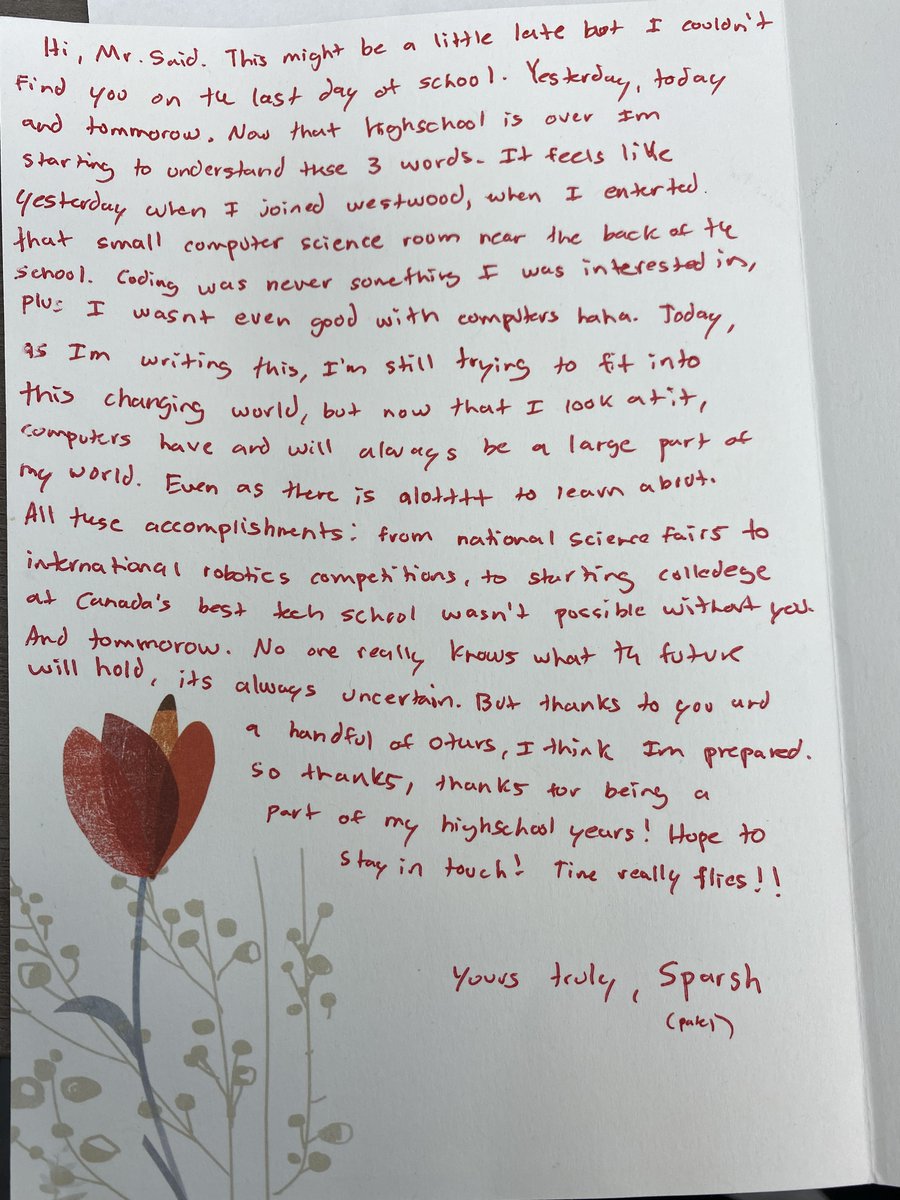 Hi, Mr. Said. This might be a little late but I couldn't
find you on the last day of school. Yesterday, today
and tommorow. Now that highschool is over Im
starting to understand these 3 words. It feels like
yesterday when I joined westwood, when I enterted
that small computer science room near the back of the
school. Coding was never something I was interested in,
plus I wasnt even good with computers haha. Today,
as Im writing this, I'm still trying to fit into
this changing world, but now that I look at it,
computers have and will always be a large part of
my world. Even as there is alotttt to learn about.
All these accomplishments: from national science fairs to
international robotics competitions, to starting colledege
at Canada's best tech school wasn't possible without you.
And tommorow. No one really knows what the future
will hold, its always uncertain. But thanks to you and
a handful of others, I think Im prepared.
so thanks, thanks for being a
part of my highschool years! Hope to
stay in touch! Time really flies!!
Yours truly, Sparsh